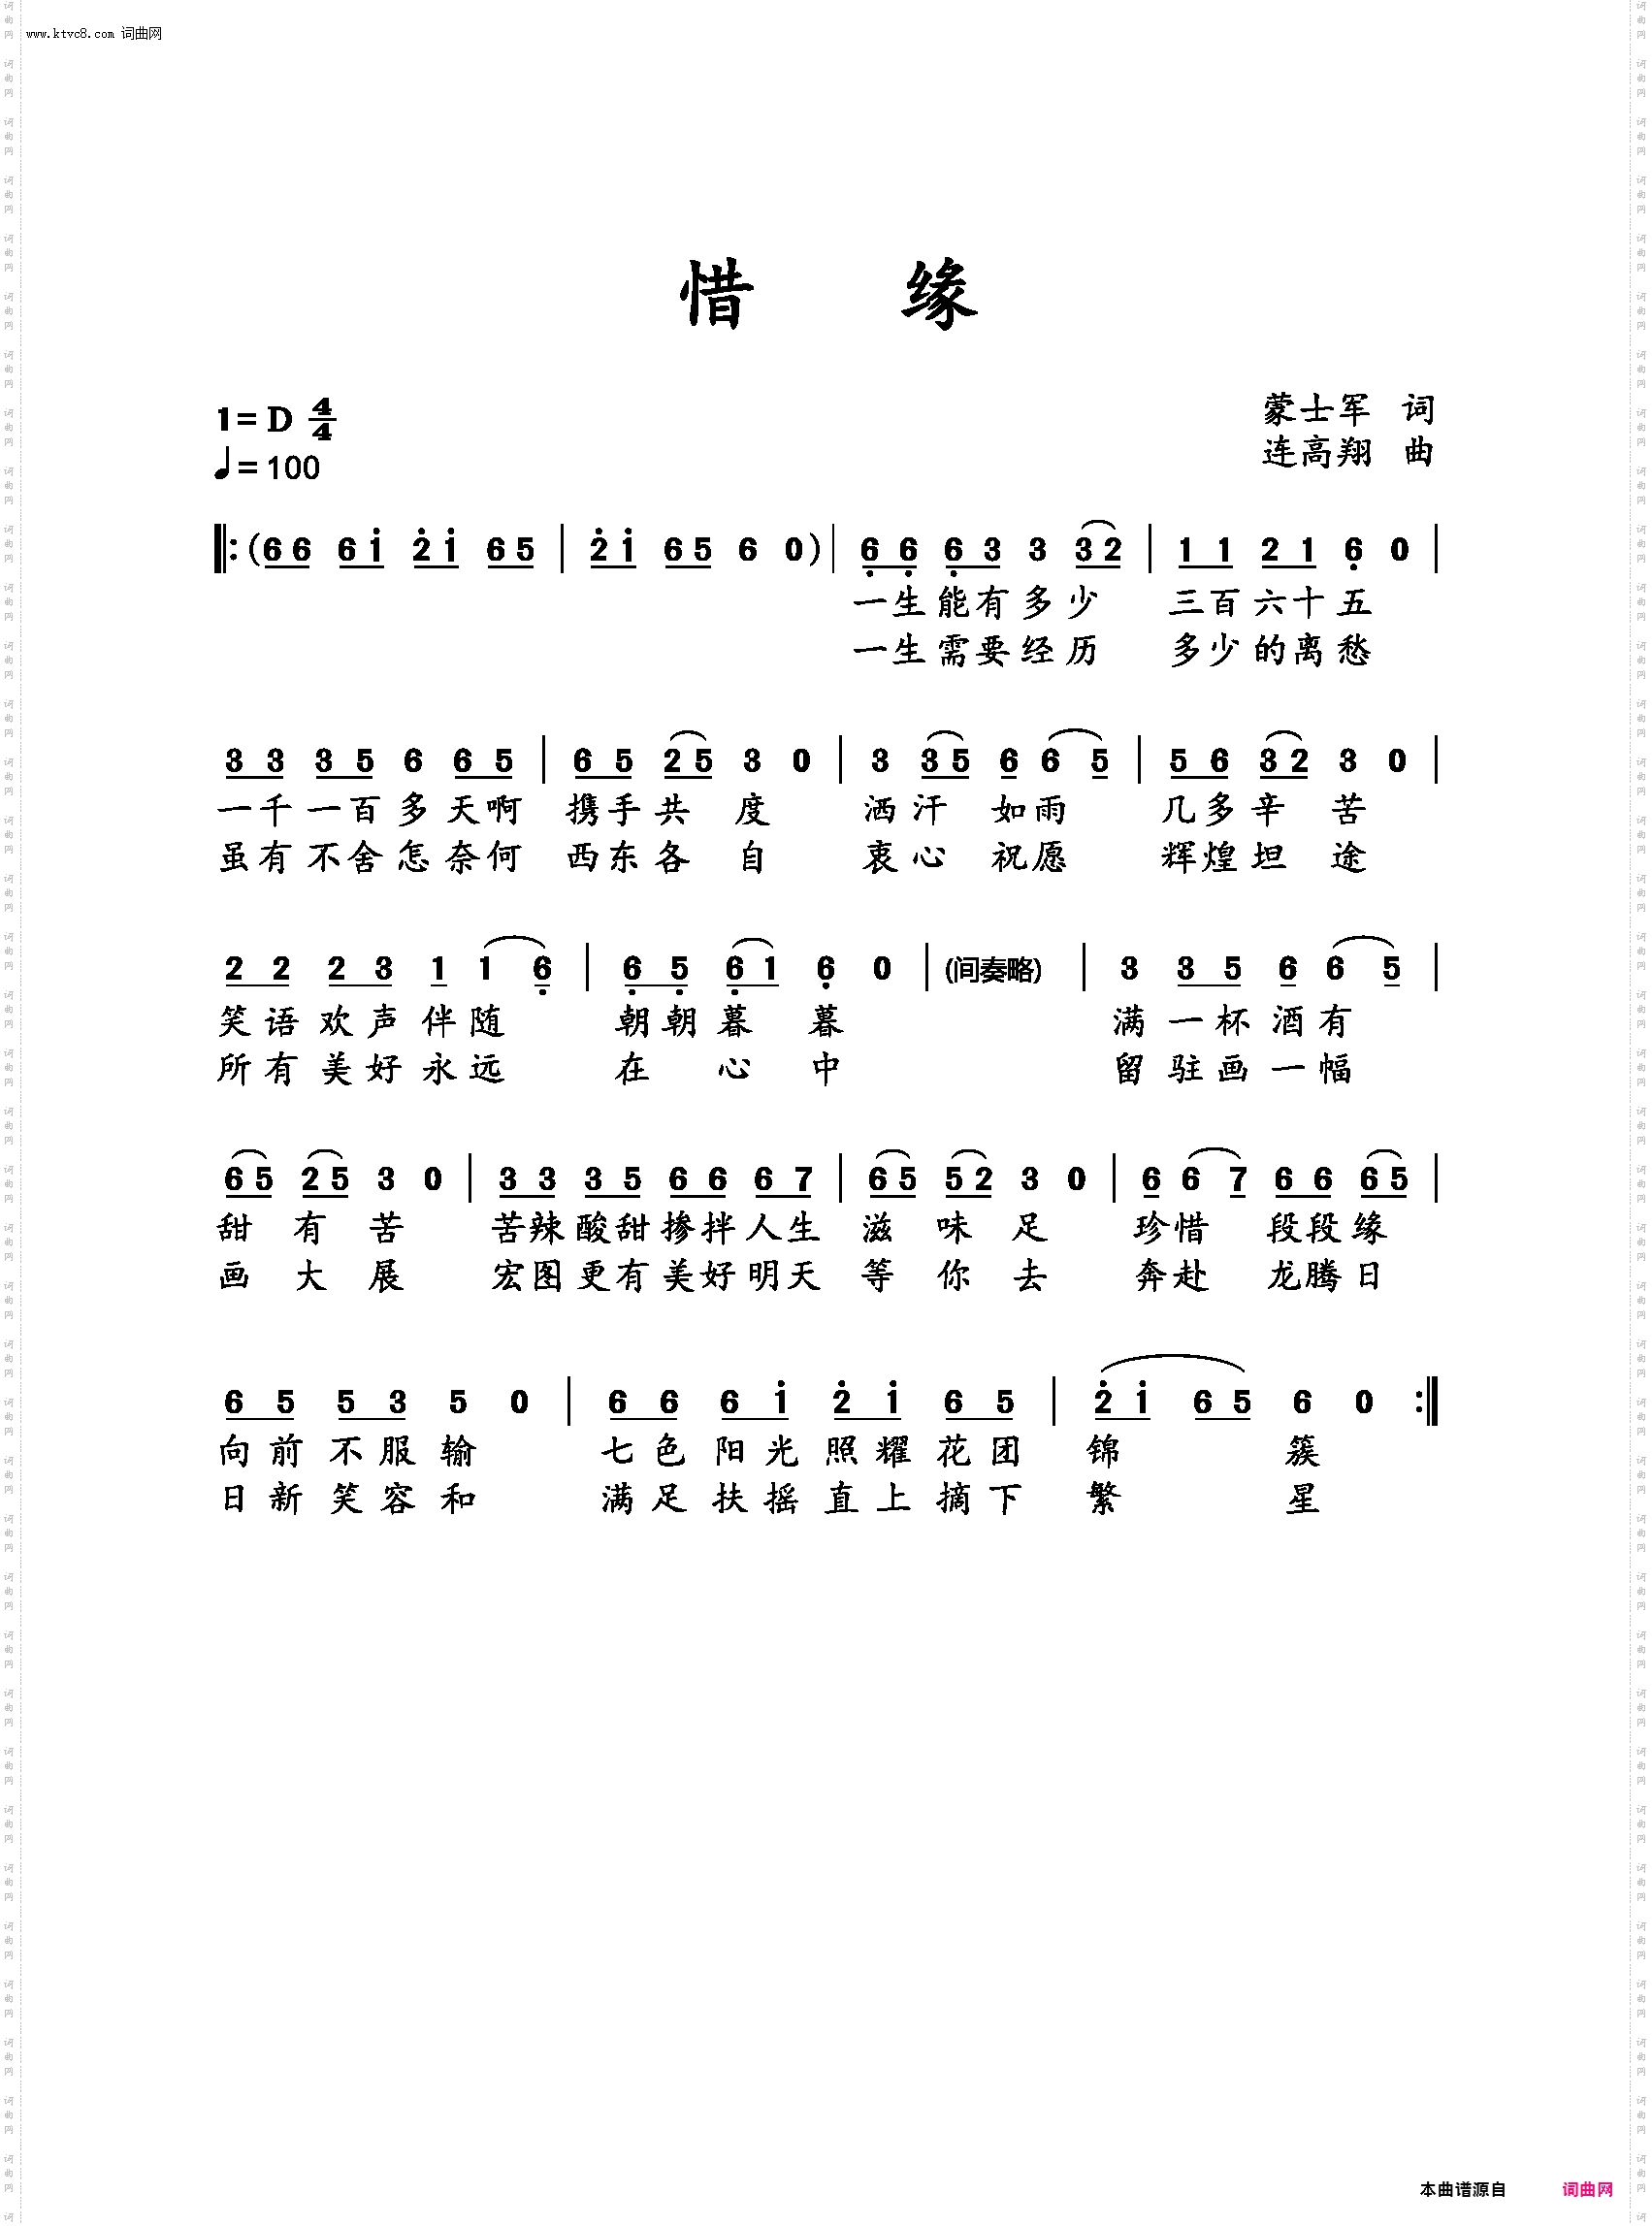 www.ktvc8.com 词曲网
惜 缘
1= D 4/4
♩= 100
蒙士军 词
连高翔 曲
‖: (6 6 6 i 2̇ i 6 5 | 2̇ i 6 5 6 0) | 6̣ 6̣ 6̣ 3 3 3 2 | 1 1 2 1 6̣ 0 |
一生能有多少 三百六十五
一生需要经历 多少的离愁
3 3 3 5 6 6 5 | 6 5 2 5 3 0 | 3 3 5 6 6 5 | 5 6 3 2 3 0 |
一千一百多天啊 携手共度 洒汗如雨 几多辛苦
虽有不舍怎奈何 西东各自 衷心祝愿 辉煌坦途
2 2 2 3 1 1 6̣ | 6̣ 5̣ 6̣ 1 6̣ 0 | (间奏略) | 3 3 5 6 6 5 |
笑语欢声伴随 朝朝暮暮 满一杯酒有
所有美好永远 在心中 留驻画一幅
6 5 2 5 3 0 | 3 3 3 5 6 6 6 7 | 6 5 5 2 3 0 | 6 6 7 6 6 6 5 |
甜有苦 苦辣酸甜掺拌人生 滋味足 珍惜段段缘
画大展 宏图更有美好明天 等你去 奔赴龙腾日
6 5 5 3 5 0 | 6 6 6 i 2̇ i 6 5 | 2̇ i 6 5 6 0 :‖
向前不服输 七色阳光照耀花团 锦簇
日新笑容和 满足扶摇直上摘下 繁星
本曲谱源自 词曲网